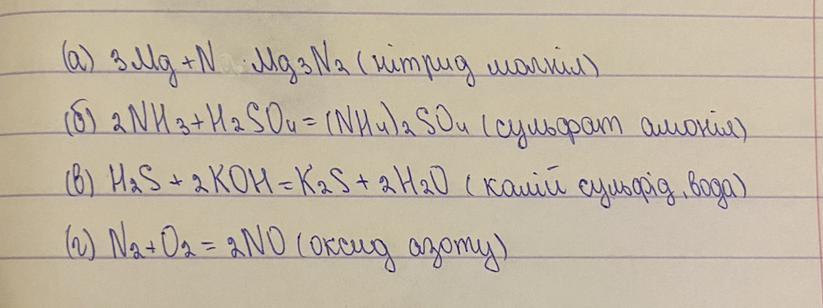 (а) 3Mg + N Mg3N2 (нітрид магнія)
(б) 2NH3 + H2SO4 = (NH4)2SO4 (сульфат амонія)
(в) H2S + 2KOH = K2S + 2H2O (калій сульфід, вода)
(г) N2 + O2 = 2NO (оксид азоту)